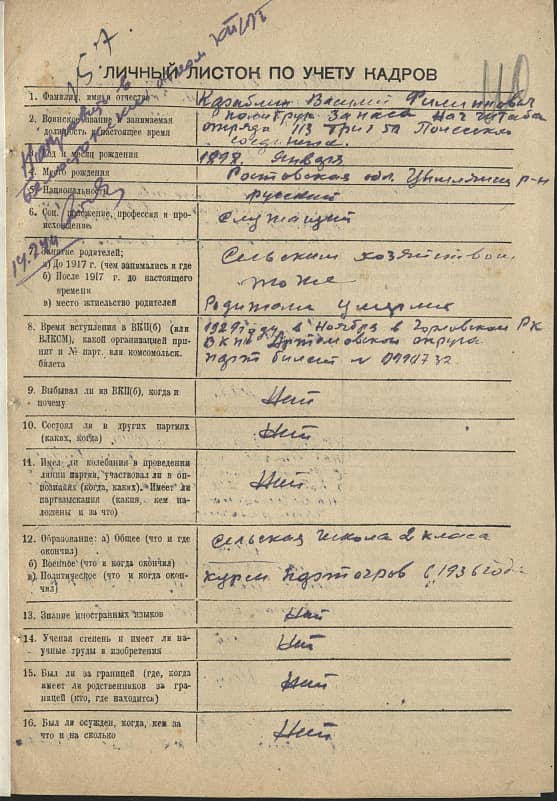 157.
110
Направлен в
14.2.44
ЛИЧНЫЙ ЛИСТОК ПО УЧЕТУ КАДРОВ
1. Фамилия, имя и отчество
Караблин Василий Филиппович
2. Воинское звание и занимаемая
должность в настоящее время
политрук запаса Нач штаба
отряда 113
3. Год и месяц рождения
1898. Января
4. Место рождения
Ростовская обл. Цымлянск р-н
5. Национальность
русский
6. Соц. положение, профессия и про-
исхождение
Служащий
7. Занятие родителей:
а) До 1917 г. (чем занимались и где
б) После 1917 г. до настоящего
времени
в) место жтиельство родителей
Сельским хозяйством
тоже
Родители умерли
8. Время вступления в ВКП(б) (или
ВЛКСМ), какой организацией при-
нят и № парт. или комсомольск.
билета
1929 году в Ноября в Горловском РК
ВКПб Артемовского округа
парт билет №
9. Выбывал ли из ВКП(б), когда и
почему
Нет
10. Состоял ли в других партиях
(каких, когда)
Нет
11. Имел ли колебания в проведении
линии партии, участвовал ли в оп-
позициях (когда, каких). Имеет ли
партвзыскания (какия, кем на-
ложены и за что)
Нет
12. Образование: а) Общее (что и где
окончил)
б) Военное (что и когда окончил)
в) Политическое (что и когда окон-
чил)
Сельская школа 2 класа
курсы 1936 год
13. Знание иностранных языков
Нет
14. Ученая степень и имеет ли на-
учные труды и изобретения
Нет
15. Был ли за границей (где, когда
имеет ли родственников за гра-
ницей (кто, где находится)
Нет
16. Был ли осужден, когда, кем за
что и на сколько
Нет